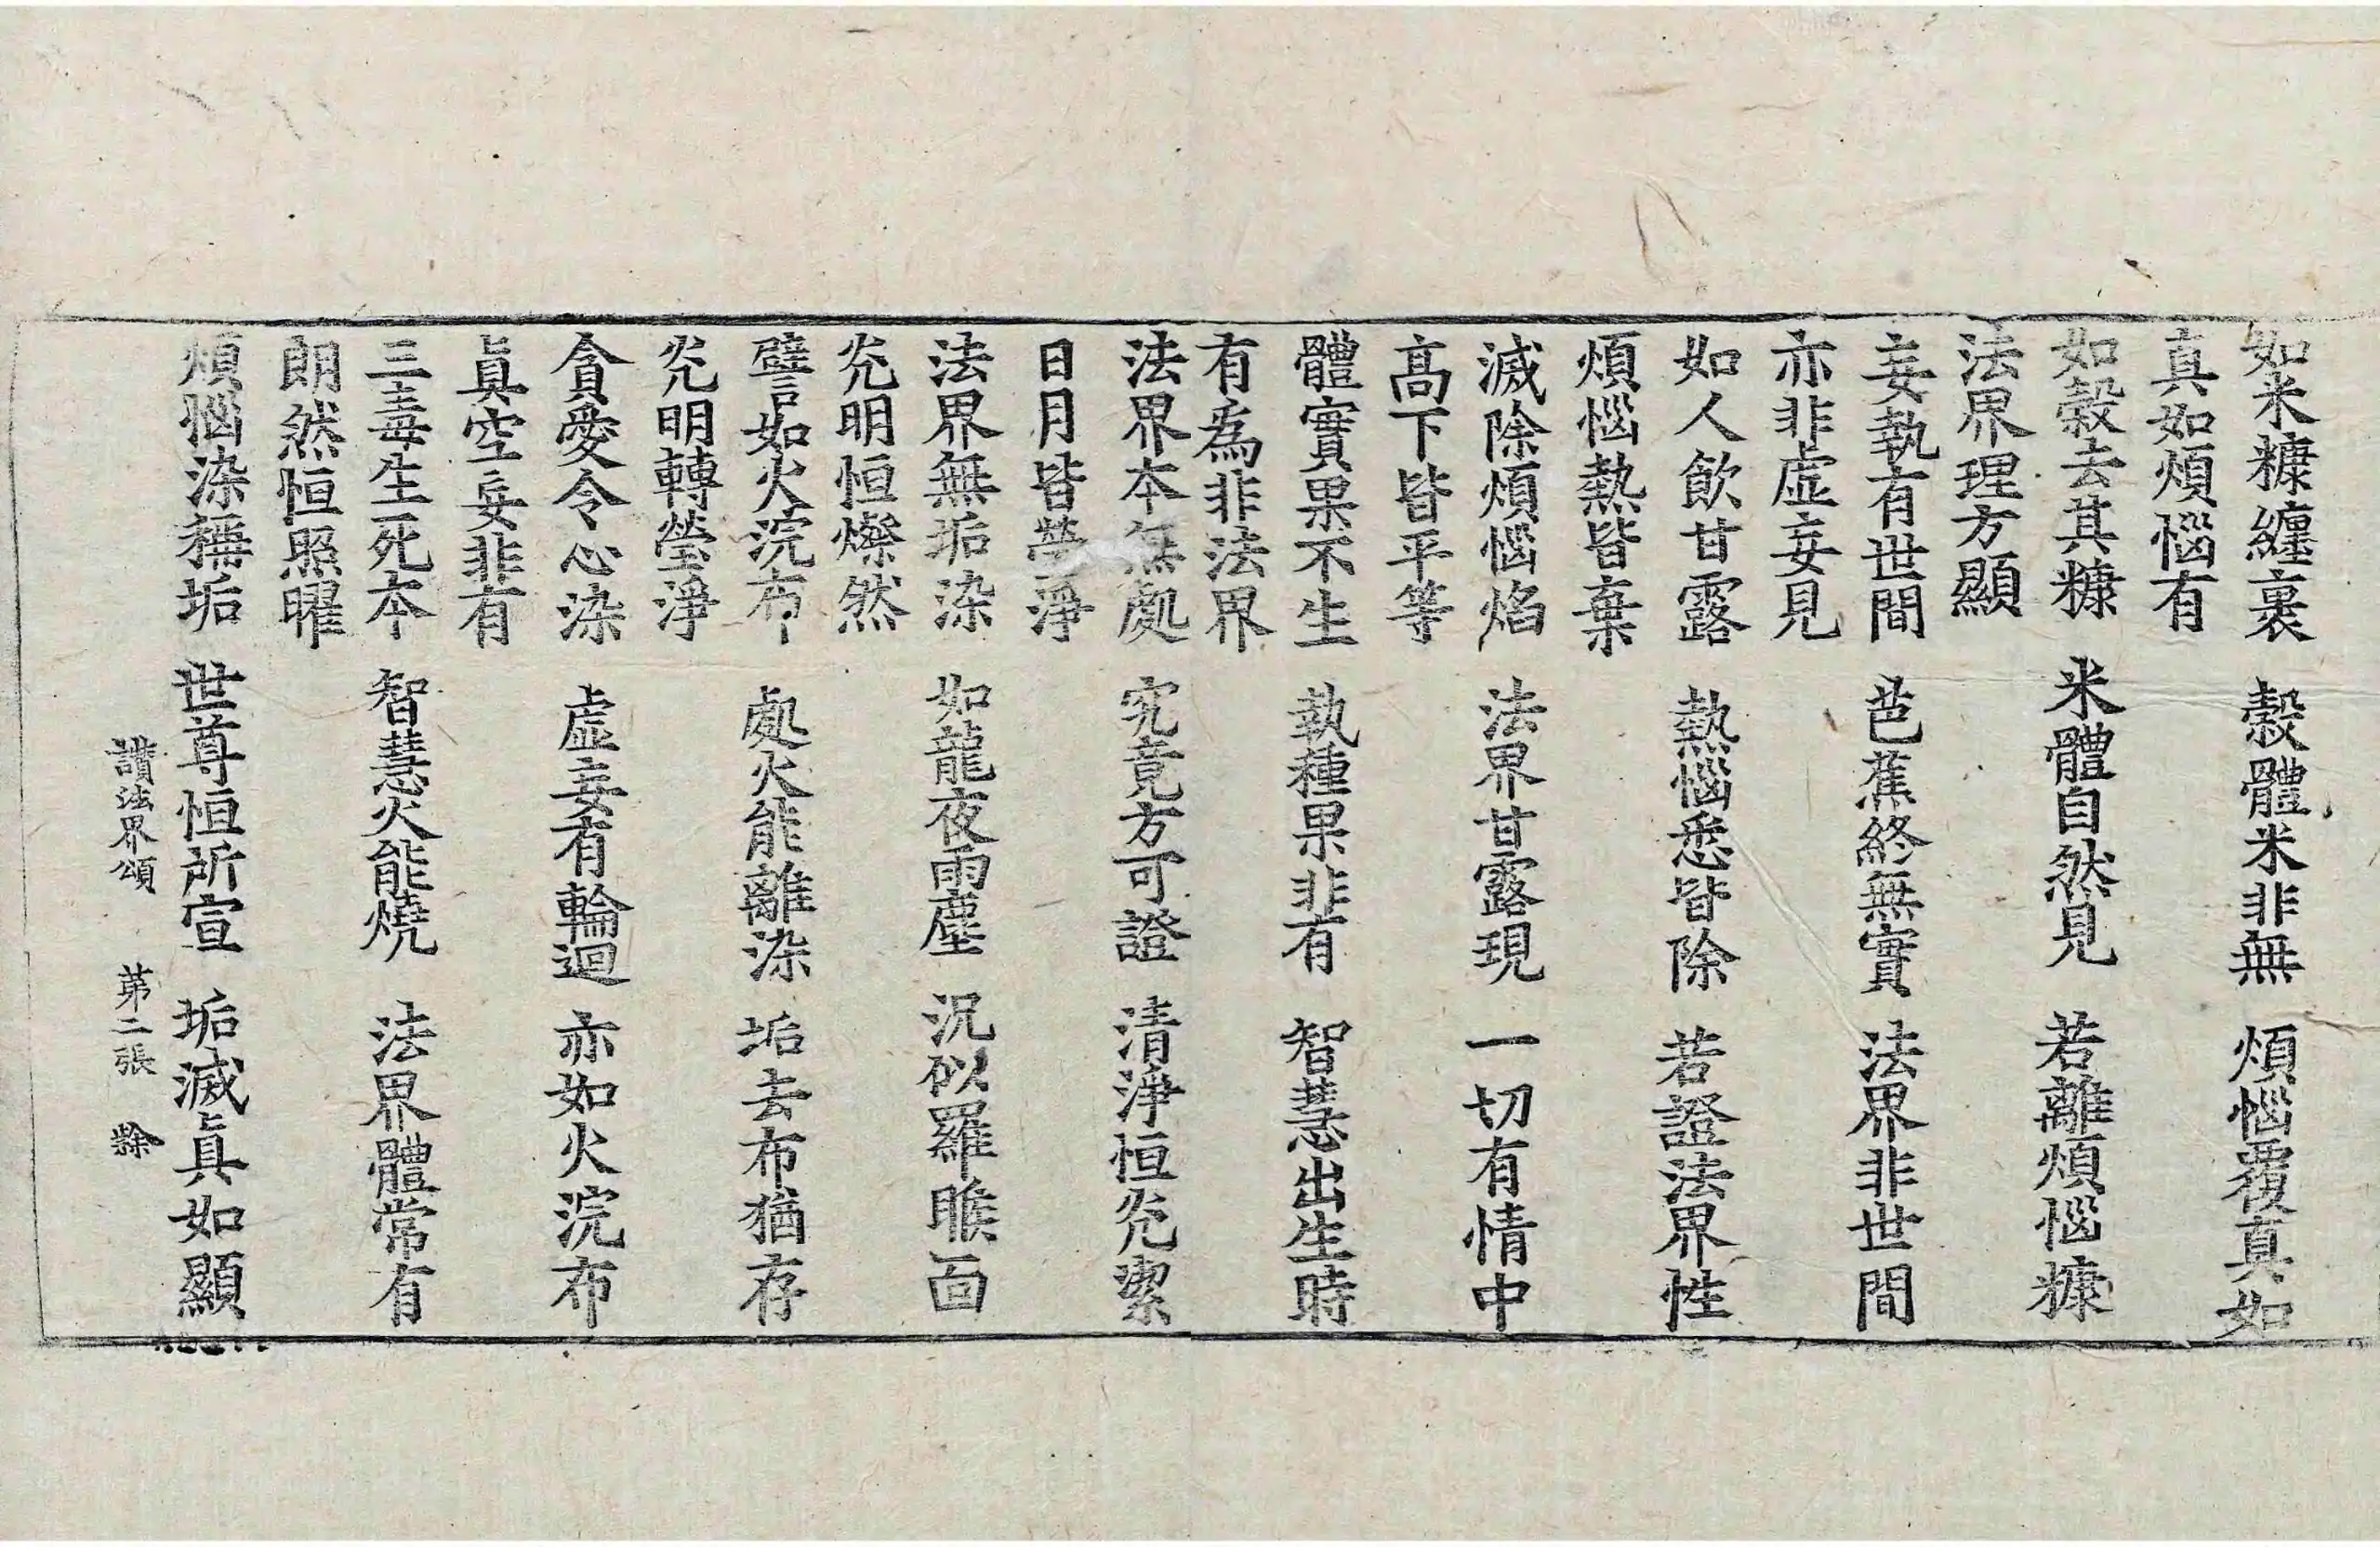 如米糠纏裹　穀體米非無　煩惱覆真如
真如煩惱有
如穀去其糠　米體自然見　若離煩惱糠
法界理方顯
妄執有世間　芭蕉終無實　法界非世間
亦非虛妄見
如人飲甘露　熱惱悉皆除　若證法界性
煩惱熱皆棄
滅除煩惱焰　法界甘露現　一切有情中
高下皆平等
體實果不生　執種果非有　智慧出生時
有為非法界
法界本無處　究竟方可證　清淨恒光潔
日月皆瑩淨
法界無垢染　如龍夜雨塵　況似羅睺面
光明恒爍然
譬如火浣布　處火能離染　垢去布猶存
光明轉瑩淨
貪愛令心染　虛妄有輪迴　亦如火浣布
眞空妄非有
三毒生死本　智慧火能燒　法界體常有
朗然恒照曜
煩惱染稱垢　世尊恒所宣　垢滅眞如顯
讃法界頌　第二張